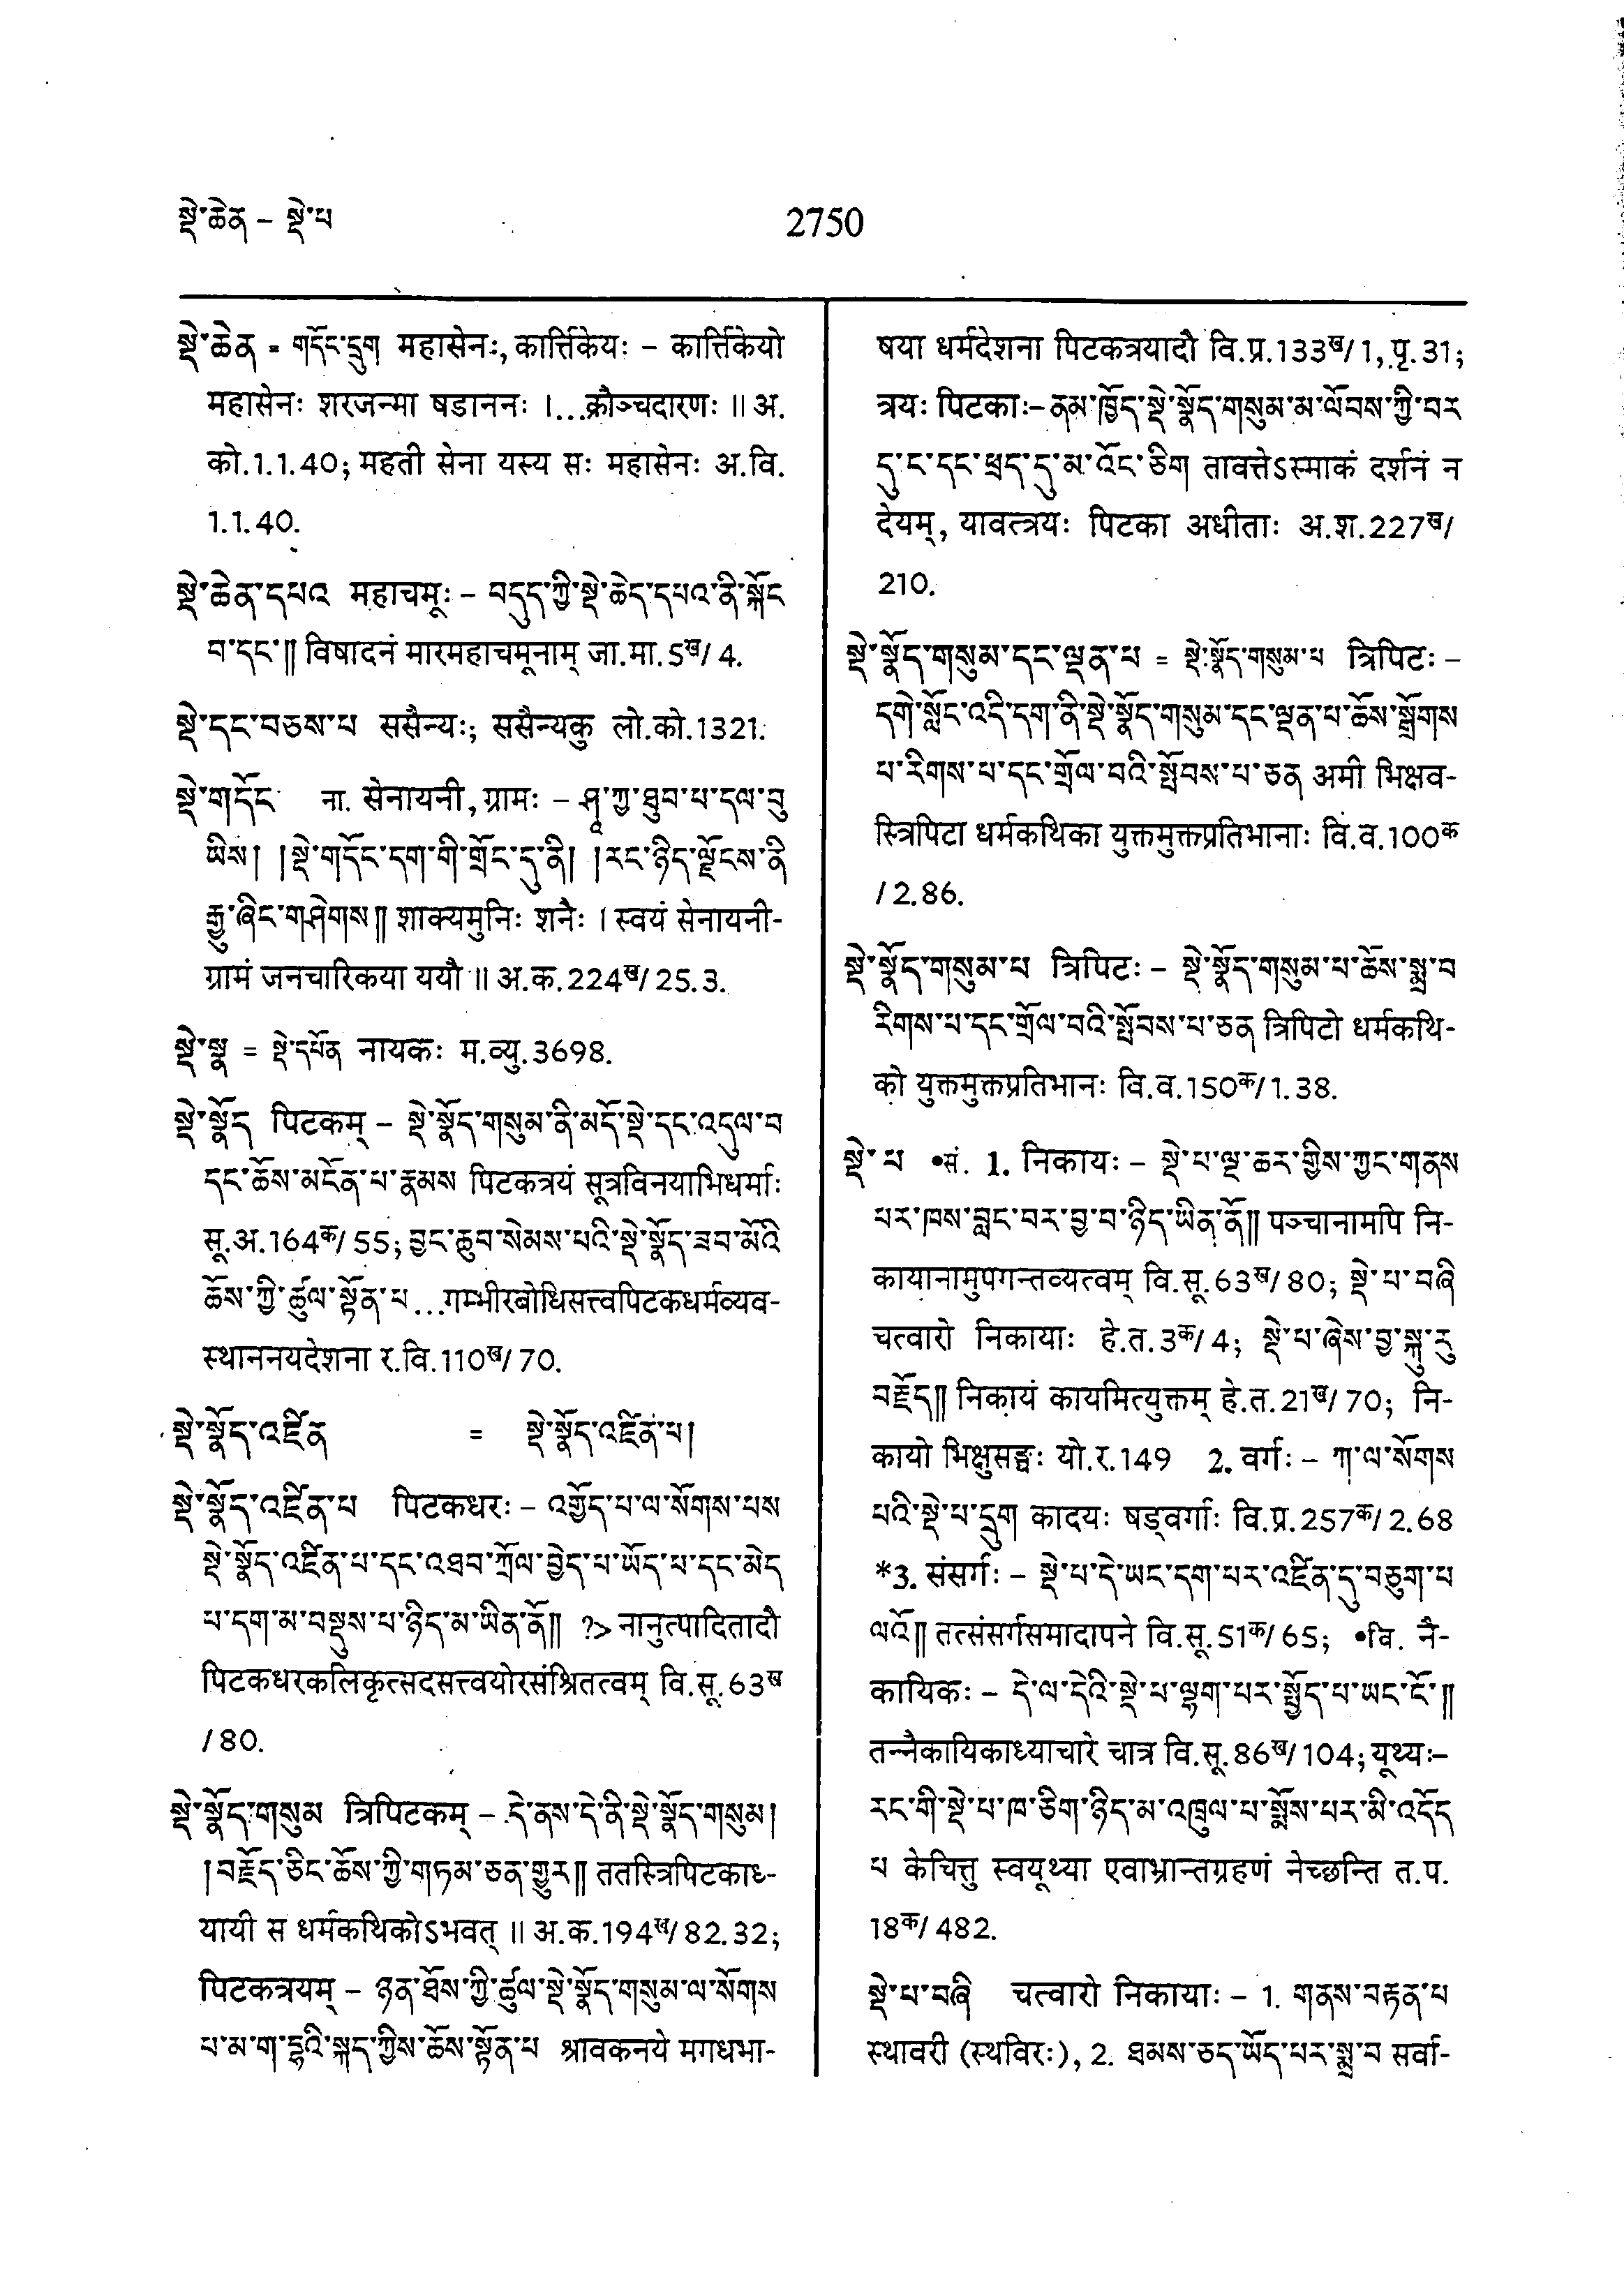 སྡེ་ཆེན – སྡེ་པ
2750
སྡེ་ཆེན = གདོང་དྲུག महासेनः, कार्त्तिकेयः – कार्त्तिकेयो
महासेनः शरजन्मा षडाननः ।...क्रौञ्चदारणः ॥ अ.
को.1.1.40; महती सेना यस्य सः महासेनः अ.वि.
1.1.40.
སྡེ་ཆེན་དཔའ महाचमूः – བདུད་ཀྱི་སྡེ་ཆེད་དཔའ་ནི་སྐོང
བ་དང་༎ विषादनं मारमहाचमूनाम् जा.मा.5ख/4.
སྡེ་དང་བཅས་པ ससैन्यः; ससैन्यकु लो.को.1321.
སྡེ་གདོང ना. सेनायनी, ग्रामः – ཤཱ་ཀྱ་ཐུབ་པ་དལ་བུ
ཡིས། །སྡེ་གདོང་དག་གི་གྲོང་དུ་ནི། །རང་ཉིད་ལྗོངས་ནི
རྒྱུ་ཞིང་གཤེགས༎ शाक्यमुनिः शनैः । स्वयं सेनायनी-
ग्रामं जनचारिकया ययौ ॥ अ.क.224ख/25.3.
སྡེ་སྣ = སྡེ་དཔོན नायकः म.व्यु.3698.
སྡེ་སྣོད पिटकम् – སྡེ་སྣོད་གསུམ་ནི་མདོ་སྡེ་དང་འདུལ་བ
དང་ཆོས་མངོན་པ་རྣམས पिटकत्रयं सूत्रविनयाभिधर्माः
सू.अ.164क/55; བྱང་ཆུབ་སེམས་པའི་སྡེ་སྣོད་ཟབ་མོའི
ཆོས་ཀྱི་ཚུལ་སྟོན་པ...गम्भीरबोधिसत्त्वपिटकधर्मव्यव-
स्थाननयदेशना र.वि.110ख/70.
སྡེ་སྣོད་འཛིན = སྡེ་སྣོད་འཛིན་པ།
སྡེ་སྣོད་འཛིན་པ पिटकधरः – འགྱོད་པ་ལ་སོགས་པས
སྡེ་སྣོད་འཛིན་པ་དང་འཐབ་ཀྲོལ་བྱེད་པ་ཡོད་པ་དང་མེད
པ་དག་མ་བསྡུས་པ་ཉིད་མ་ཡིན་ནོ༎ ?> नानुत्पादितादौ
पिटकधरकलिकृत्सदसत्त्वयोरसंश्रितत्वम् वि.सू.63ख
/80.
སྡེ་སྣོད་གསུམ त्रिपिटकम् – དེ་ནས་དེ་ནི་སྡེ་སྣོད་གསུམ།
།བརྗོད་ཅིང་ཆོས་ཀྱི་གཏམ་ཅན་གྱུར༎ ततस्त्रिपिटकाध्-
यायी स धर्मकथिकोऽभवत् ॥ अ.क.194ख/82.32;
पिटकत्रयम् – ཉན་ཐོས་ཀྱི་ཚུལ་སྡེ་སྣོད་གསུམ་ལ་སོགས
པ་མ་ག་དྷའི་སྐད་ཀྱིས་ཆོས་སྟོན་པ श्रावकनये मगधभा-
षया धर्मदेशना पिटकत्रयादौ वि.प्र.133ख/1, पृ.31;
त्रयः पिटकाः– ནམ་ཁྱོད་སྡེ་སྣོད་གསུམ་མ་ལོབས་ཀྱི་བར
དུ་ང་དང་ཕྲད་དུ་མ་འོང་ཅིག तावत्तेऽस्माकं दर्शनं न
देयम्, यावत्त्रयः पिटका अधीताः अ.श.227ख/
210.
སྡེ་སྣོད་གསུམ་དང་ལྡན་པ = སྡེ་སྣོད་གསུམ་པ त्रिपिटः –
དགེ་སློང་འདི་དག་ནི་སྡེ་སྣོད་གསུམ་དང་ལྡན་པ་ཆོས་སྒྲོགས
པ་རིགས་པ་དང་གྲོལ་བའི་སྤོབས་པ་ཅན अमी भिक्षव-
स्त्रिपिटा धर्मकथिका युक्तमुक्तप्रतिभानाः वि.व.100क
/2.86.
སྡེ་སྣོད་གསུམ་པ त्रिपिटः – སྡེ་སྣོད་གསུམ་པ་ཆོས་སྨྲ་བ
རིགས་པ་དང་གྲོལ་བའི་སྤོབས་པ་ཅན त्रिपिटो धर्मकथि-
को युक्तमुक्तप्रतिभानः वि.व.150क/1.38.
སྡེ་པ •सं. 1. निकायः – སྡེ་པ་ལྔ་ཆར་གྱིས་ཀྱང་གནས
པར་ཁས་བླང་བར་བྱ་བ་ཉིད་ཡིན་ནོ༎ पञ्चानामपि नि-
कायानामुपगन्तव्यत्वम् वि.सू.63ख/80; སྡེ་པ་བཞི
चत्वारो निकायाः हे.त.3क/4; སྡེ་པ་ཞེས་བྱ་སྐུ་རུ
བརྗོད༎ निकायं कायमित्युक्तम् हे.त.21ख/70; नि-
कायो भिक्षुसङ्घः यो.र.149 2. वर्गः – ཀ་ལ་སོགས
པའི་སྡེ་པ་དྲུག कादयः षड्वर्गाः वि.प्र.257क/2.68
*3. संसर्गः – སྡེ་པ་དེ་ཡང་དག་པར་འཛིན་དུ་བཅུག་པ
ལའོ༎ तत्संसर्गसमादापने वि.सू.51क/65; •वि. नै-
कायिकः – དེ་ལ་དེའི་སྡེ་པ་ལྷག་པར་སྤྱོད་པ་ཡང་ངོ་༎
तन्नैकायिकाध्याचारे चात्र वि.सू.86ख/104; यूथ्यः–
རང་གི་སྡེ་པ་ཁ་ཅིག་ཉིད་མ་འཁྲུལ་པ་སྨོས་པར་མི་འདོད
པ केचित्तु स्वयूथ्या एवाभ्रान्तग्रहणं नेच्छन्ति त.प.
18क/482.
སྡེ་པ་བཞི चत्वारो निकायाः – 1. གནས་བརྟན་པ
स्थावरी (स्थविरः), 2. ཐམས་ཅད་ཡོད་པར་སྨྲ་བ सर्वा-